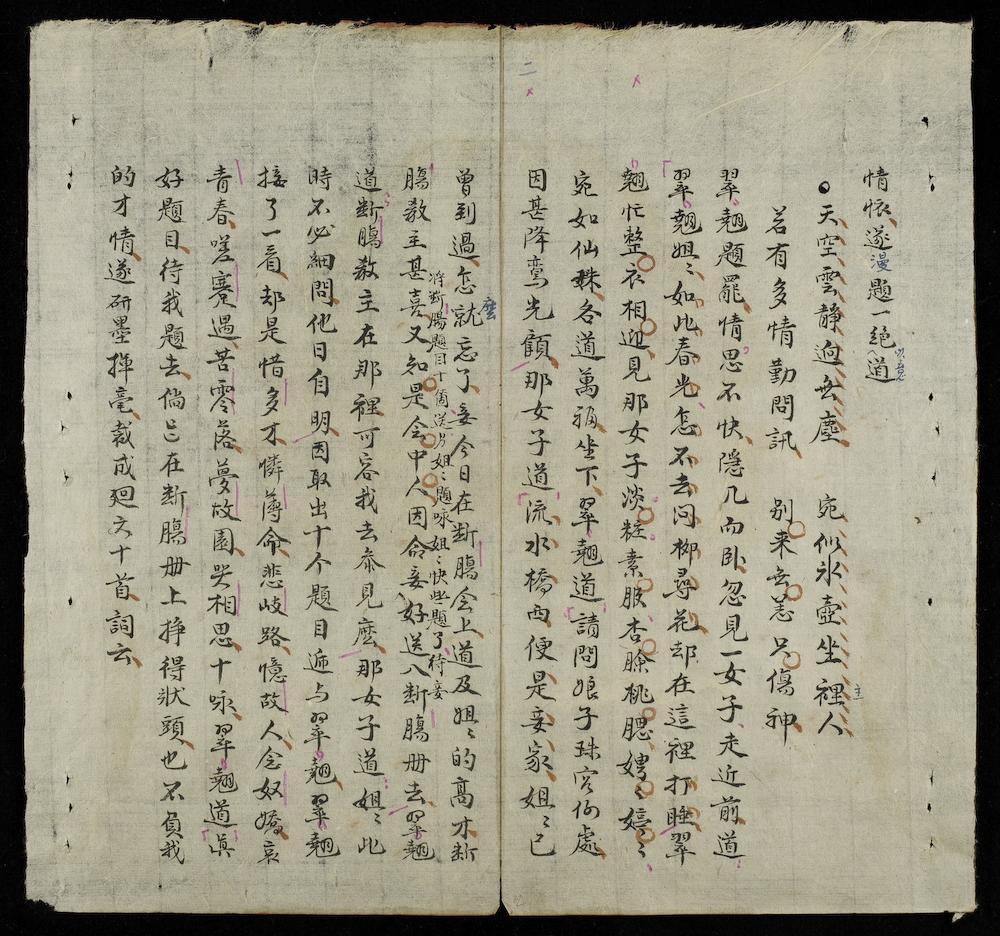 情懷遂漫題一絕道
天空雲静逈無塵　宛似氷壺坐裡人
若有多情勤問訊　別来無恙只傷神
翠翹題罷情思不快隱几而卧忽見一女子走近前道
翠翹姐〻如此春光怎不去问柳尋花却在這裡打睡翠
翹忙整衣相迎見那女子淡粧素服杏臉桃腮娉〻婷〻
宛如仙姝各道萬福坐下翠翹道請問娘子珠宫何處
因甚降鸞光顧那女子道流水橋西便是妾家姐〻已
曾到過怎就忘了妾今日在断膓会上道及姐〻的高才断
膓教主甚喜又知是会中人因命妾
将断膓題目十個送与姐〻題咏姐〻快些題了待妾
好送入断膓册去翠翹
道断膓教主在那裡可容我去叅見麽那女子道姐〻此
時不必細問他日自明因取出十个題目逓与翠翹翠翹
接了一看却是惜多才憐薄命悲岐路憶故人念奴嬌哀
青春嗟蹇遇苦零落夢故園哭相思十咏翠翹道眞
好題目待我題去倘㠯在断膓册上挣得状頭也不負我
的才情遂研墨揮毫裁成廻文十首詞云
二
麽
主